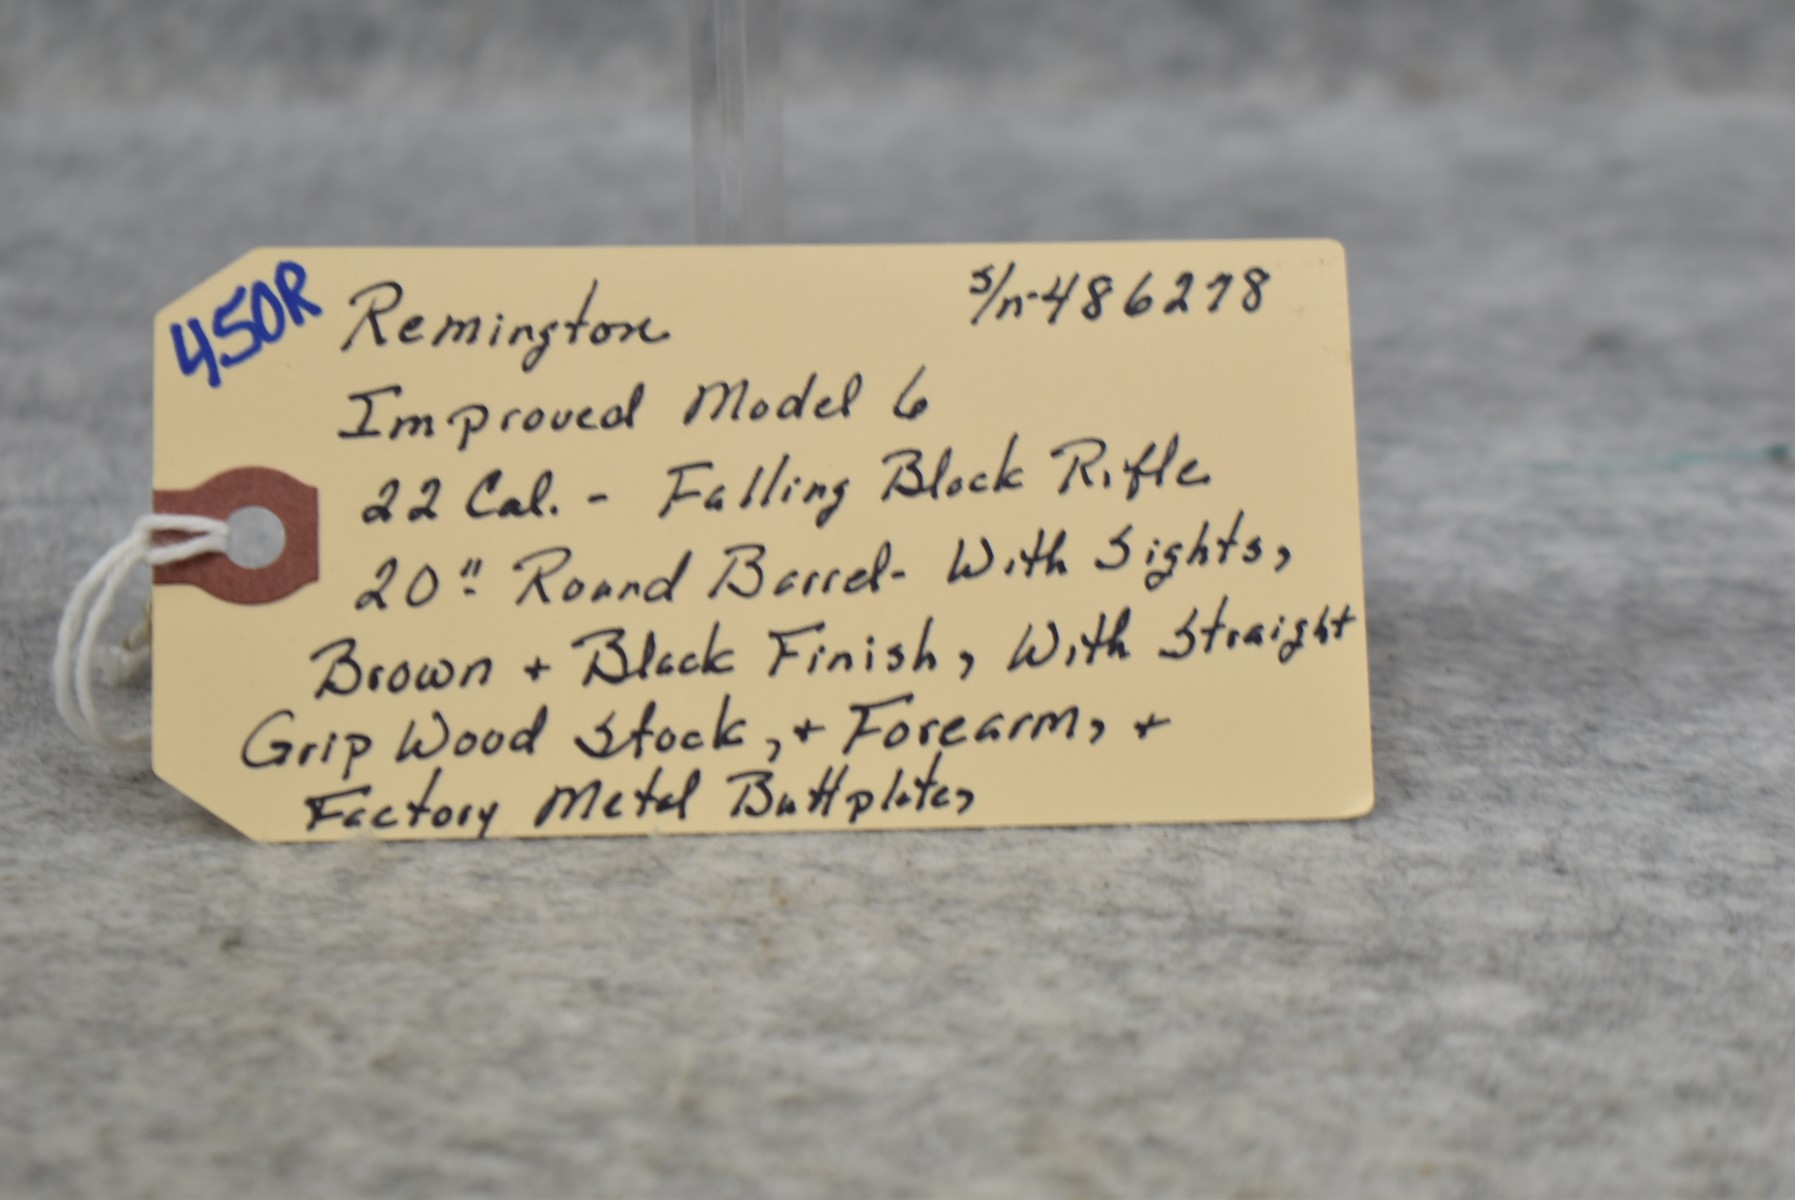 450R
Remington s/n-486278
Improved Model 6
22 Cal. - Falling Block Rifle
20" Round Barrel- With Sights,
Brown + Black Finish, With Straight
Grip Wood Stock, + Forearm, +
Factory Metal Buttplate,